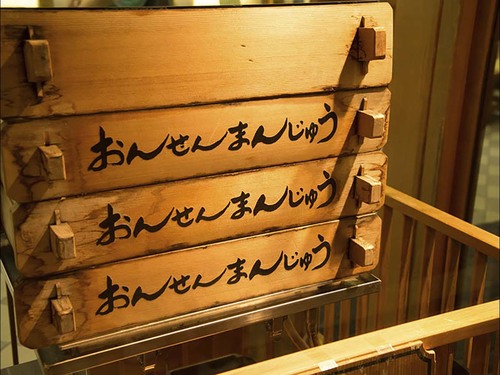 おんせんまんじゅう
おんせんまんじゅう
おんせんまんじゅう